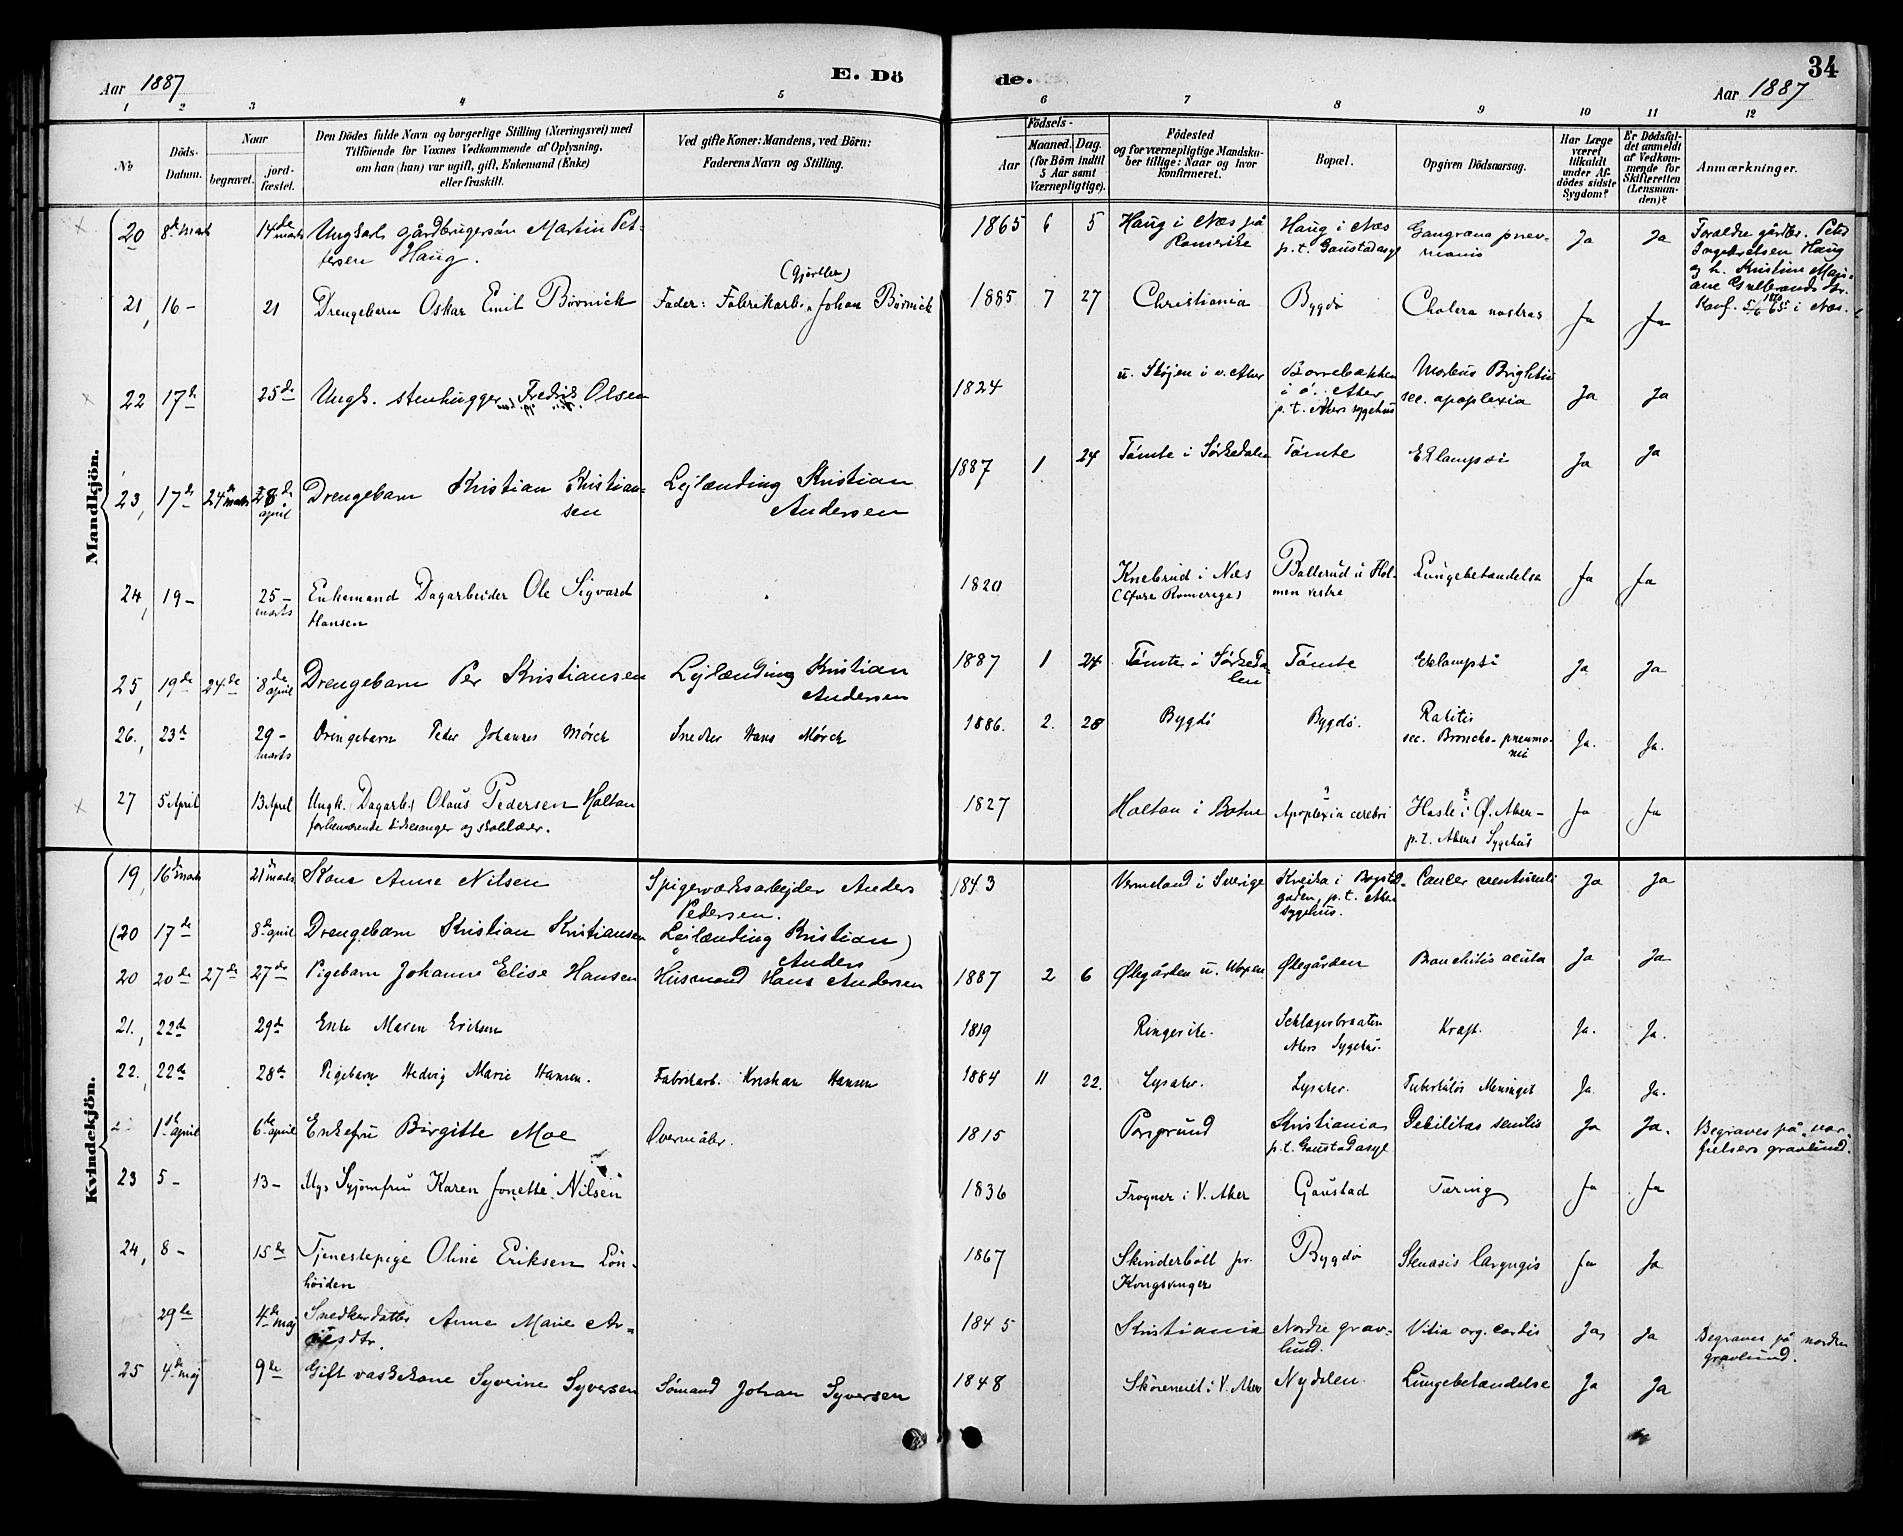 Aar 1887
E. Dö
de.
34
Aar 1887
1 2 3 4 5 6 7 8 9 10 11 12
No
Döds-Datum.
Naar
begravet.
jord-fæstet.
Den Dödes fulde Navn og borgerlige Stilling (Næringsvei) med
Tilföiende for Voxnes Vedkommende af Oplysning,
om han (hun) var ugift, gift, Enkemand (Enke)
eller fraskilt.
Ved gifte Koner: Mandens, ved Börn:
Faderens Navn og Stilling.
Födsels-
Aar
Maaned. Dag.
(for Börn indtil
5 Aar samt
Værnepligtige).
Födested
og for værnepligtige Mandska-
ber tillige: Naar og hvor
konfirmeret.
Bopæl.
Opgiven Dödsaarsag.
Har Læge
været
tilkaldt
under Af-
dödes sidste
Sygdom?
Er Dödsfal-
det anmeldt
af Vedkom-
mende for
Skifteretten
(Lensman-
den)?
Anmærkninger.
Mandkjön.
20 8de marts 14de marts Ungkarl gårdbrugersøn Martin Pet-
tersen Haug.
1865 6 5 Haug i Næs på
Romerike
Haug i Næs
p.t. Gaustadasyl
Gangræna pnev-
monis
Ja Ja
Forældre gårdbr. Peter
Ingebretsen Haug
og h. Kristine Mari-
ane Gulbrandsdtr.
i Næs.
21, 16 - 21 Drengebarn Oskar Emil Børnick
(Gjørtler)
Fader: Fabrikarb. Johan Børnick
1885 7 27 Christiania Bygdø Cholera nostras Ja Ja
22 17de 25de Ungk. stenhugger Fredrik Olsen
1824 u. Skøjen i v. Aker
Borrebækken
i ö. Aker
p.t. Akers sygehus
Morbus Brightii
sec. apoplexia
Ja Ja
23, 17de 24de marts 8de april Drengebarn Kristian Kristian-
sen
Lejlænding Kristian
Andersen
1887 1 24 Tømte i Sørkedalen Tømte Eklampsi Ja Ja
24, 19 - 25 - marts Enkemand Dagarbeider Ole Sigvard
Hansen
1820 Knebrud i Næs
(Øvre Romerige)
Ballerud u. Hol-
men vestre
Lungebetændelse Ja Ja
25, 19de 24de 8de april Drengebarn Per Kristiansen
Lejlænding Kristian
Andersen
1887 1 24 Tømte i Sørkeda-
len
Tømte Eklampsi Ja Ja
26., 23de 29 - marts Drengebarn Peder Johannes Mörch Snedker Hans Mörch
1886. 2. 28 Bygdö Bygdö.
Rakitis
sec. Broncho-pneumo-
nie
Ja. Ja.
27 5 April 13 April Ungk. (Dagarb.) Olaus Pedersen Holtan
forhenværende kirkesanger og skolelærer.
1827 Holtan i Botne Apoplexia cerebri
Hasle i Ø. Aker -
p.t. Akers Sygehus
Ja Ja
Kvindekjön.
19, 16de marts 21de marts Kone Anne Nilsen
Spigerværksarbejder Anders
Pedersen.
1843 Vermeland i Sverige
Kneika i Bogstad-
gaden, p.t. Aker
sygehus.
Cancer ventriculi Ja Ja
(20 17de 8de april Drengebarn Kristian Kristiansen Lejlænding Kristian)
Anders
20 20de 27de 27de Pigebarn Johanne Elise Hansen Husmand Hans Andersen
1887 2 6 Ølegården u. Voxen Ølegården Bronchitis acuta Ja Ja
21., 22de 29de Enke Maren Eriksen
1819 Ringerike.
Schlagerbraaten
Akers Sygehus.
Kræft. Ja. Ja.
22., 22de 28de Pigebarn Hedvig Marie Hansen. Fabrikarb. Kristian Hansen
1884 11 22. Lysaker. Lysaker. Tuberkuløs Meninget Ja Ja.
1ste april 6te april Enkefru Birgitte Moe Overmåler.
1815 Porsgrund
Kristiania
p.t. Gaustadasyl
Debilitas senilis Ja Ja.
Begraves på vor
frelsers gravlund.
23 5 - 13 - Ugs Syjomfru Karen Jonette Nilsen
1836 Frogner i V. Aker Gaustad Tæring Ja Ja
24, 8 - 15de Tjenestepige Oline Eriksen Løn-
høiden
1867 Skinderböll pr.
Kongsvinger
Bygdø Stenosis laryngis Ja Ja
29de 4de maj Snedkerdatter Anne Marie Ar-
nesdtr.
1845 Kristiania
Nordre grav-
lund.
Vitia org. cordis Ja, Ja
Begraves på nordre
gravlund.
25 4de maj 9de Gift vaskekone Syverine Syversen Sømand Johan Syversen
1848 i V. Aker Nydalen Lungebetændelse Ja Ja